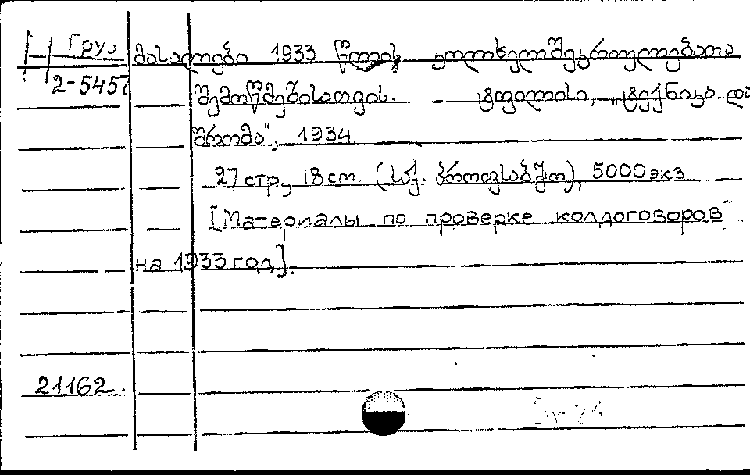 Груз მასალები 1933 წლის კოლხელშეკრულებათა
2-5457 შემოწმებისათვის. - ტფილისი, „ტექნიკა და
შრომა", 1934
27 стр., 18 cm. (საქ. პროფსაბჭო), 5000 экз
[Материалы по проверке колдоговоров
на 1933 год].
21162.